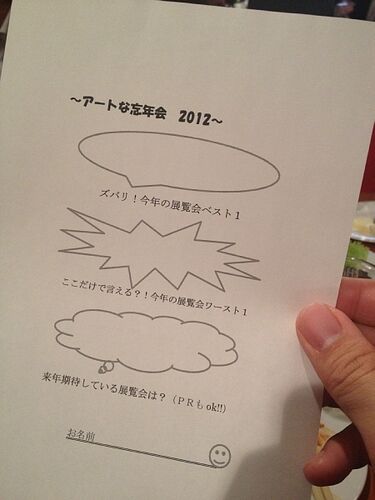 ～アートな忘年会　2012～
ズバリ！今年の展覧会ベスト１
ここだけで言える？！今年の展覧会ワースト１
来年期待している展覧会は？（ＰＲもok!!）
お名前